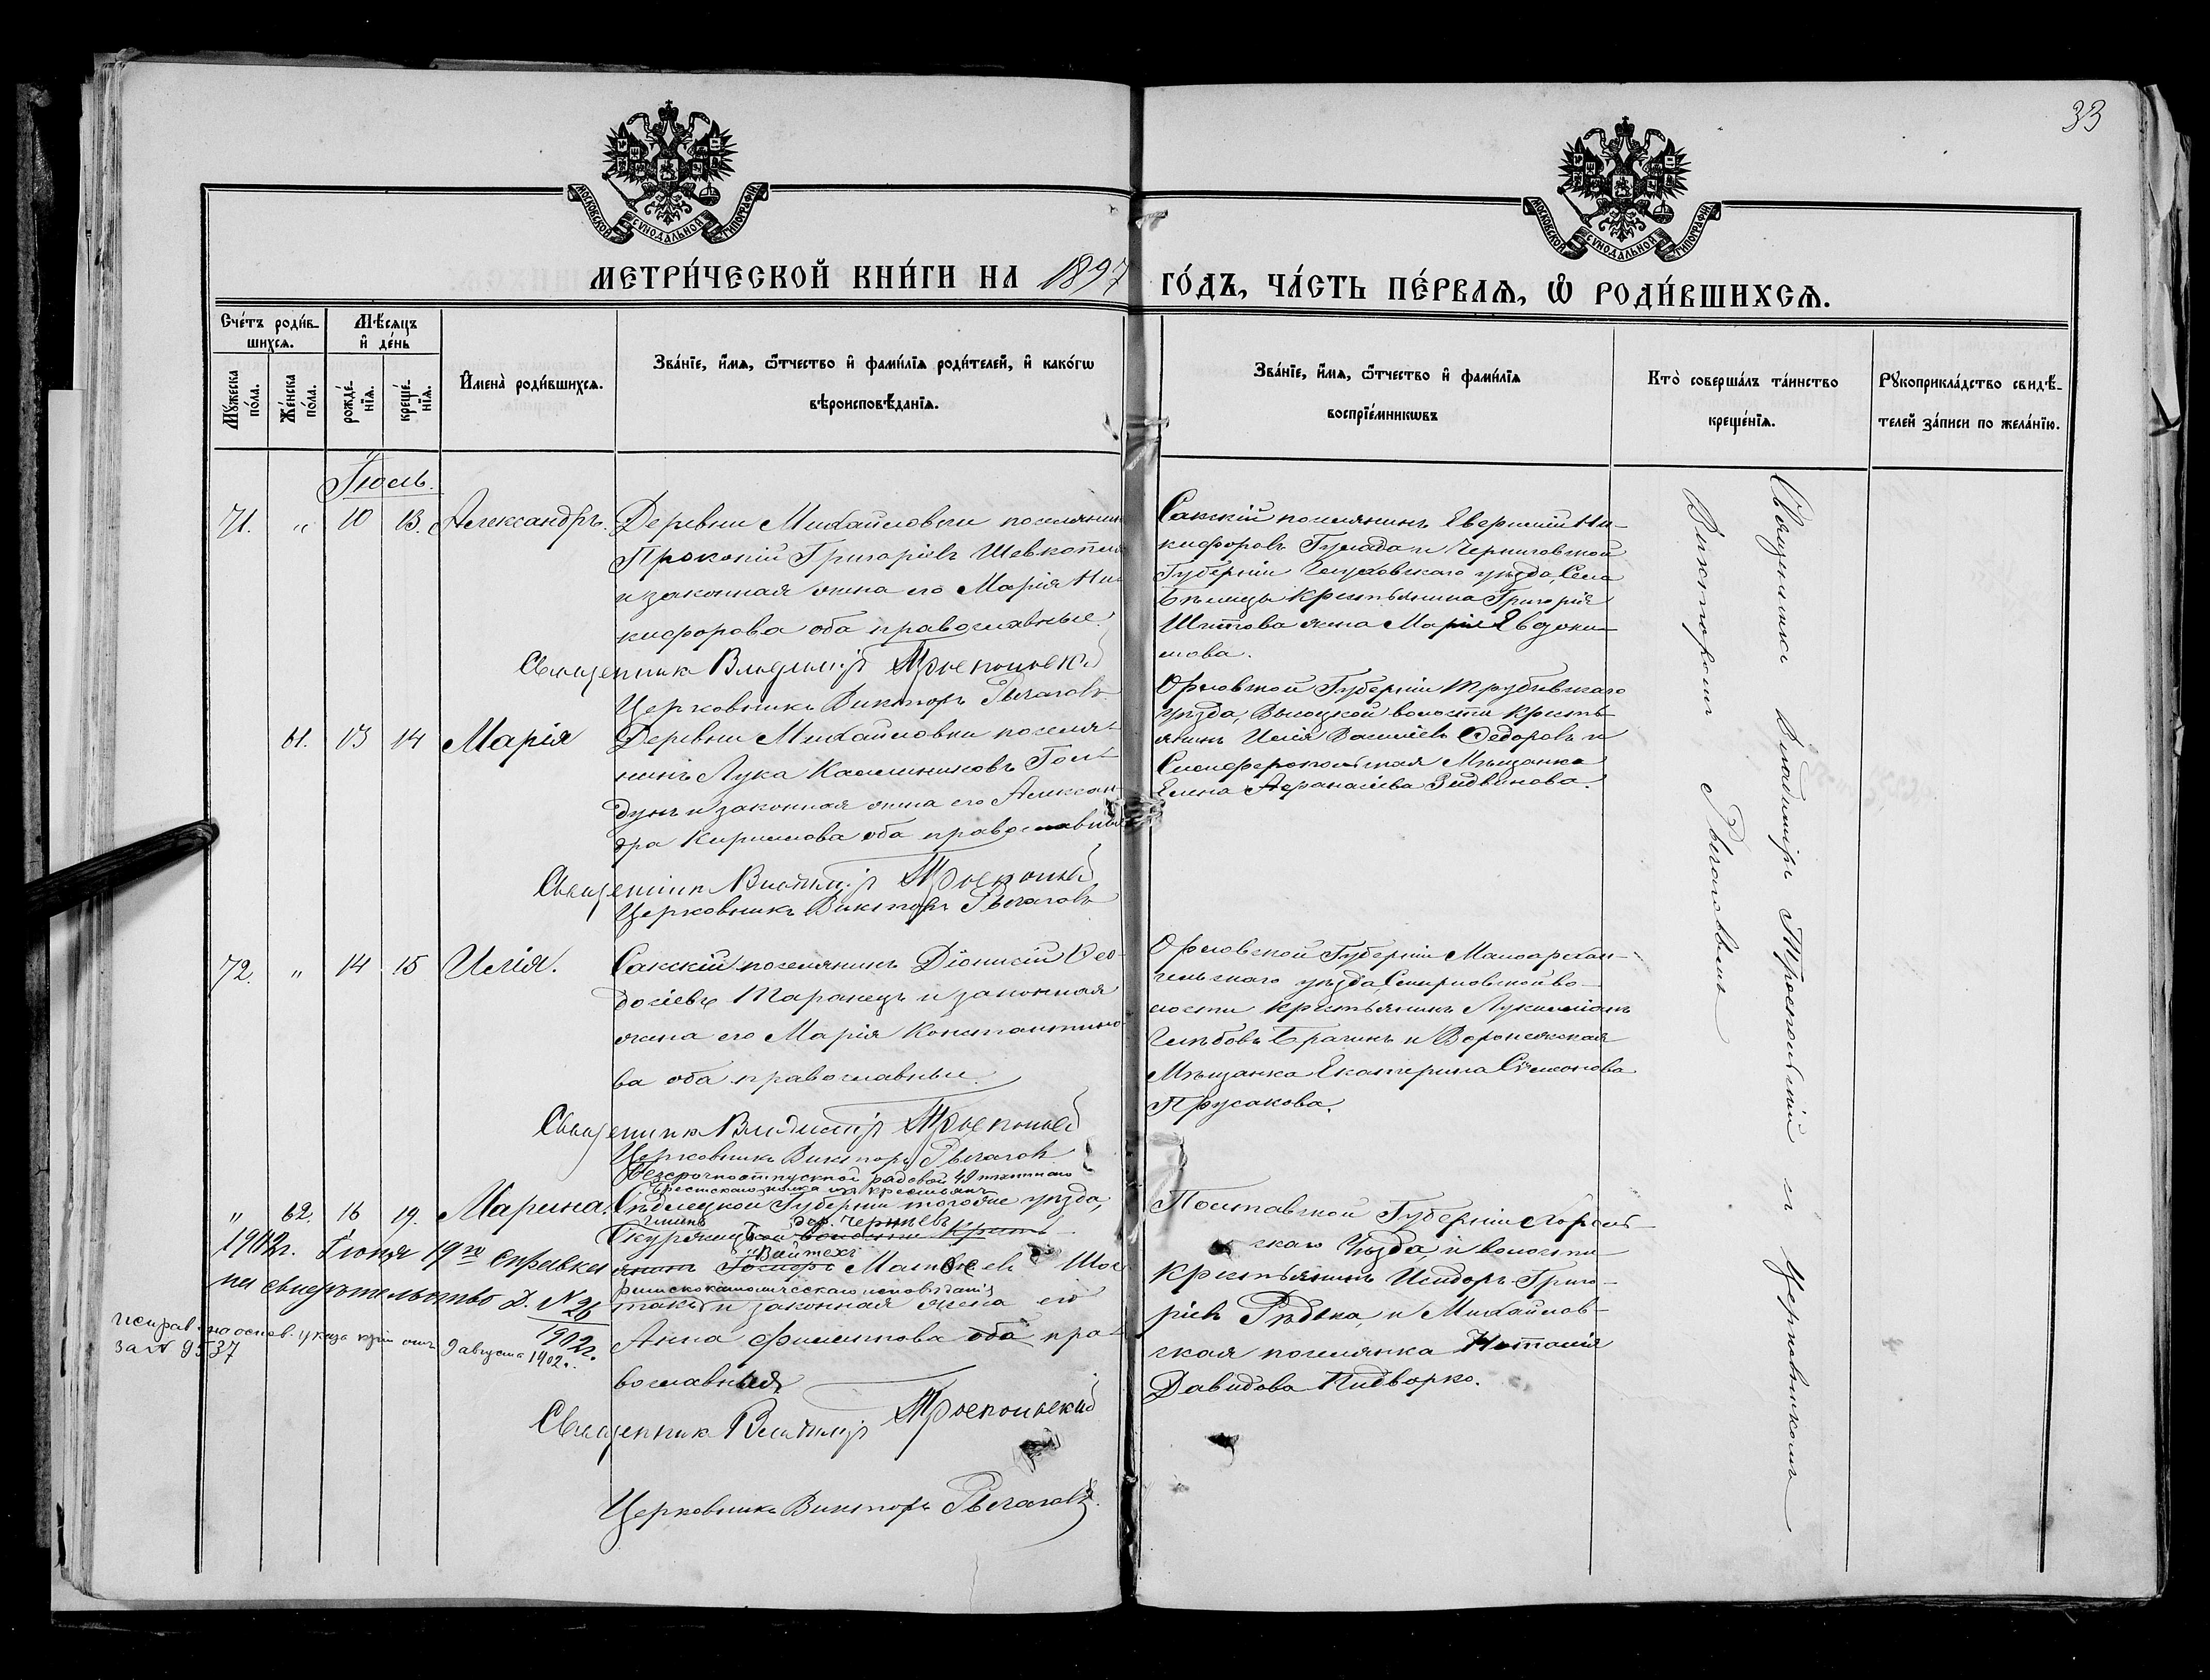 33
МОСКОВСКОЙ СѴНОДАЛЬНОЙ ТИПОГРАФІИ
МОСКОВСКОЙ СѴНОДАЛЬНОЙ ТИПОГРАФІИ
МЕТРИ́ЧЕСКОЙ КНИ́ГИ НА 1897 ГО́ДЪ, ЧА́СТЬ ПЕ́РВАѦ, Ѽ РОДИ́ВШИХСѦ.
Сче́тъ роди́в-
шихсѧ.
Мꙋ́жеска по́ла.
Же́нска по́ла.
Мѣ́сѧцъ
и҆ де́нь
рожде́-
нїѧ.
креще́-
нїѧ.
И҆мена̀ роди́вшихсѧ.
Зва́нїе, и҆́мѧ, ѻ҆́тчество и҆ фами́лїѧ роди́телей, и҆ како́гѡ
вѣроисповѣ́данїѧ.
Зва́нїе, и҆́мѧ, ѻ҆́тчество и҆ фами́лїѧ
воспрїе́мникѡвъ
Кто̀ соверша́лъ та́инство
креще́нїѧ.
Рꙋкоприкла́дство свидѣ́-
телей за́писи по жела́нїю.
Іюль.
71. " 10 13. Александръ.
Деревни Михайловки поселянинъ
Прокопій Григоріевъ Шевкопляс
и законная жена его Марія Ни-
кифорова оба православные.
Священникъ Владиміръ Троепольскій
Церковникъ Викторъ Рычаговъ
Сакскій поселянинъ Евфимій Ни-
кифоровъ Гулада и Черниговской
Губерніи Глуховскаго уѣзда, Села
Бѣлицы Крестьянина Григорія
Шитова жена Марія Евдоки-
мова.
61. 13 14 Марія
Деревни Михайловки поселя-
нинъ Лука Калинниковъ Гол-
дунъ и законная жена его Алексан-
дра Кирилова оба православные
Священникъ Владиміръ Троепольскій
Церковникъ Викторъ Рычаговъ
Орловской Губерніи Трубчевскаго
уѣзда, Высоцкой волости Кресть-
янинъ Илія Васильевъ Ѳедоровъ и
Симферопольская Мѣщанка
Елена Аѳанасіева Зидвинова.
72. " 14 15 Илія.
Сакскій поселянинъ Діонисій Ѳео-
досіевъ Таранецъ и законная
жена его Марія Константино-
ва оба православные.
Священникъ Владиміръ Троепольскій
Церковникъ Викторъ Рычаговъ
Орловской Губерніи Малоархан-
гельскаго уѣзда, Смирновской во-
лости Крестьянинъ Лукилліанъ
Глѣбовъ Брагинъ и Воронежская
Мѣщанка Екатерина Симонова
Прусакова.
" 62. 16 19. Марина.
Безсрочноотпускной рядовой 49 пѣхотнаго
Брестскаго полка изъ крестьянъ
Сѣдлецкой Губерніи тогоже уѣзда,
гмины дер. Чернѣевъ
Скуржецкой волости крест-
Войтехъ
янинъ Госпоръ Матвѣевъ Шос
римскокатолическаго исповѣданія
такъ и законная жена его
Анна Филиппова оба пра-
вославныя
Священникъ Владиміръ Троепольскій
Церковникъ Викторъ Рычаговъ.
Полтавской Губерніи Хороль-
скаго Уѣзда, и волости
Крестьянинъ Исидоръ Григо-
ріевъ Рѣдька, и Михайлов-
ская поселянка Наталія
Давидова Пидворко.
1902г. Іюня 19го справка
на свидѣтельство Д. N 26
1902г.
исправ. на основ. указа к-ріи отъ 9 августа 1902г.
за N 9537
Священникъ Владиміръ Троепольскій съ церковникомъ
Викторомъ Рычаговымъ